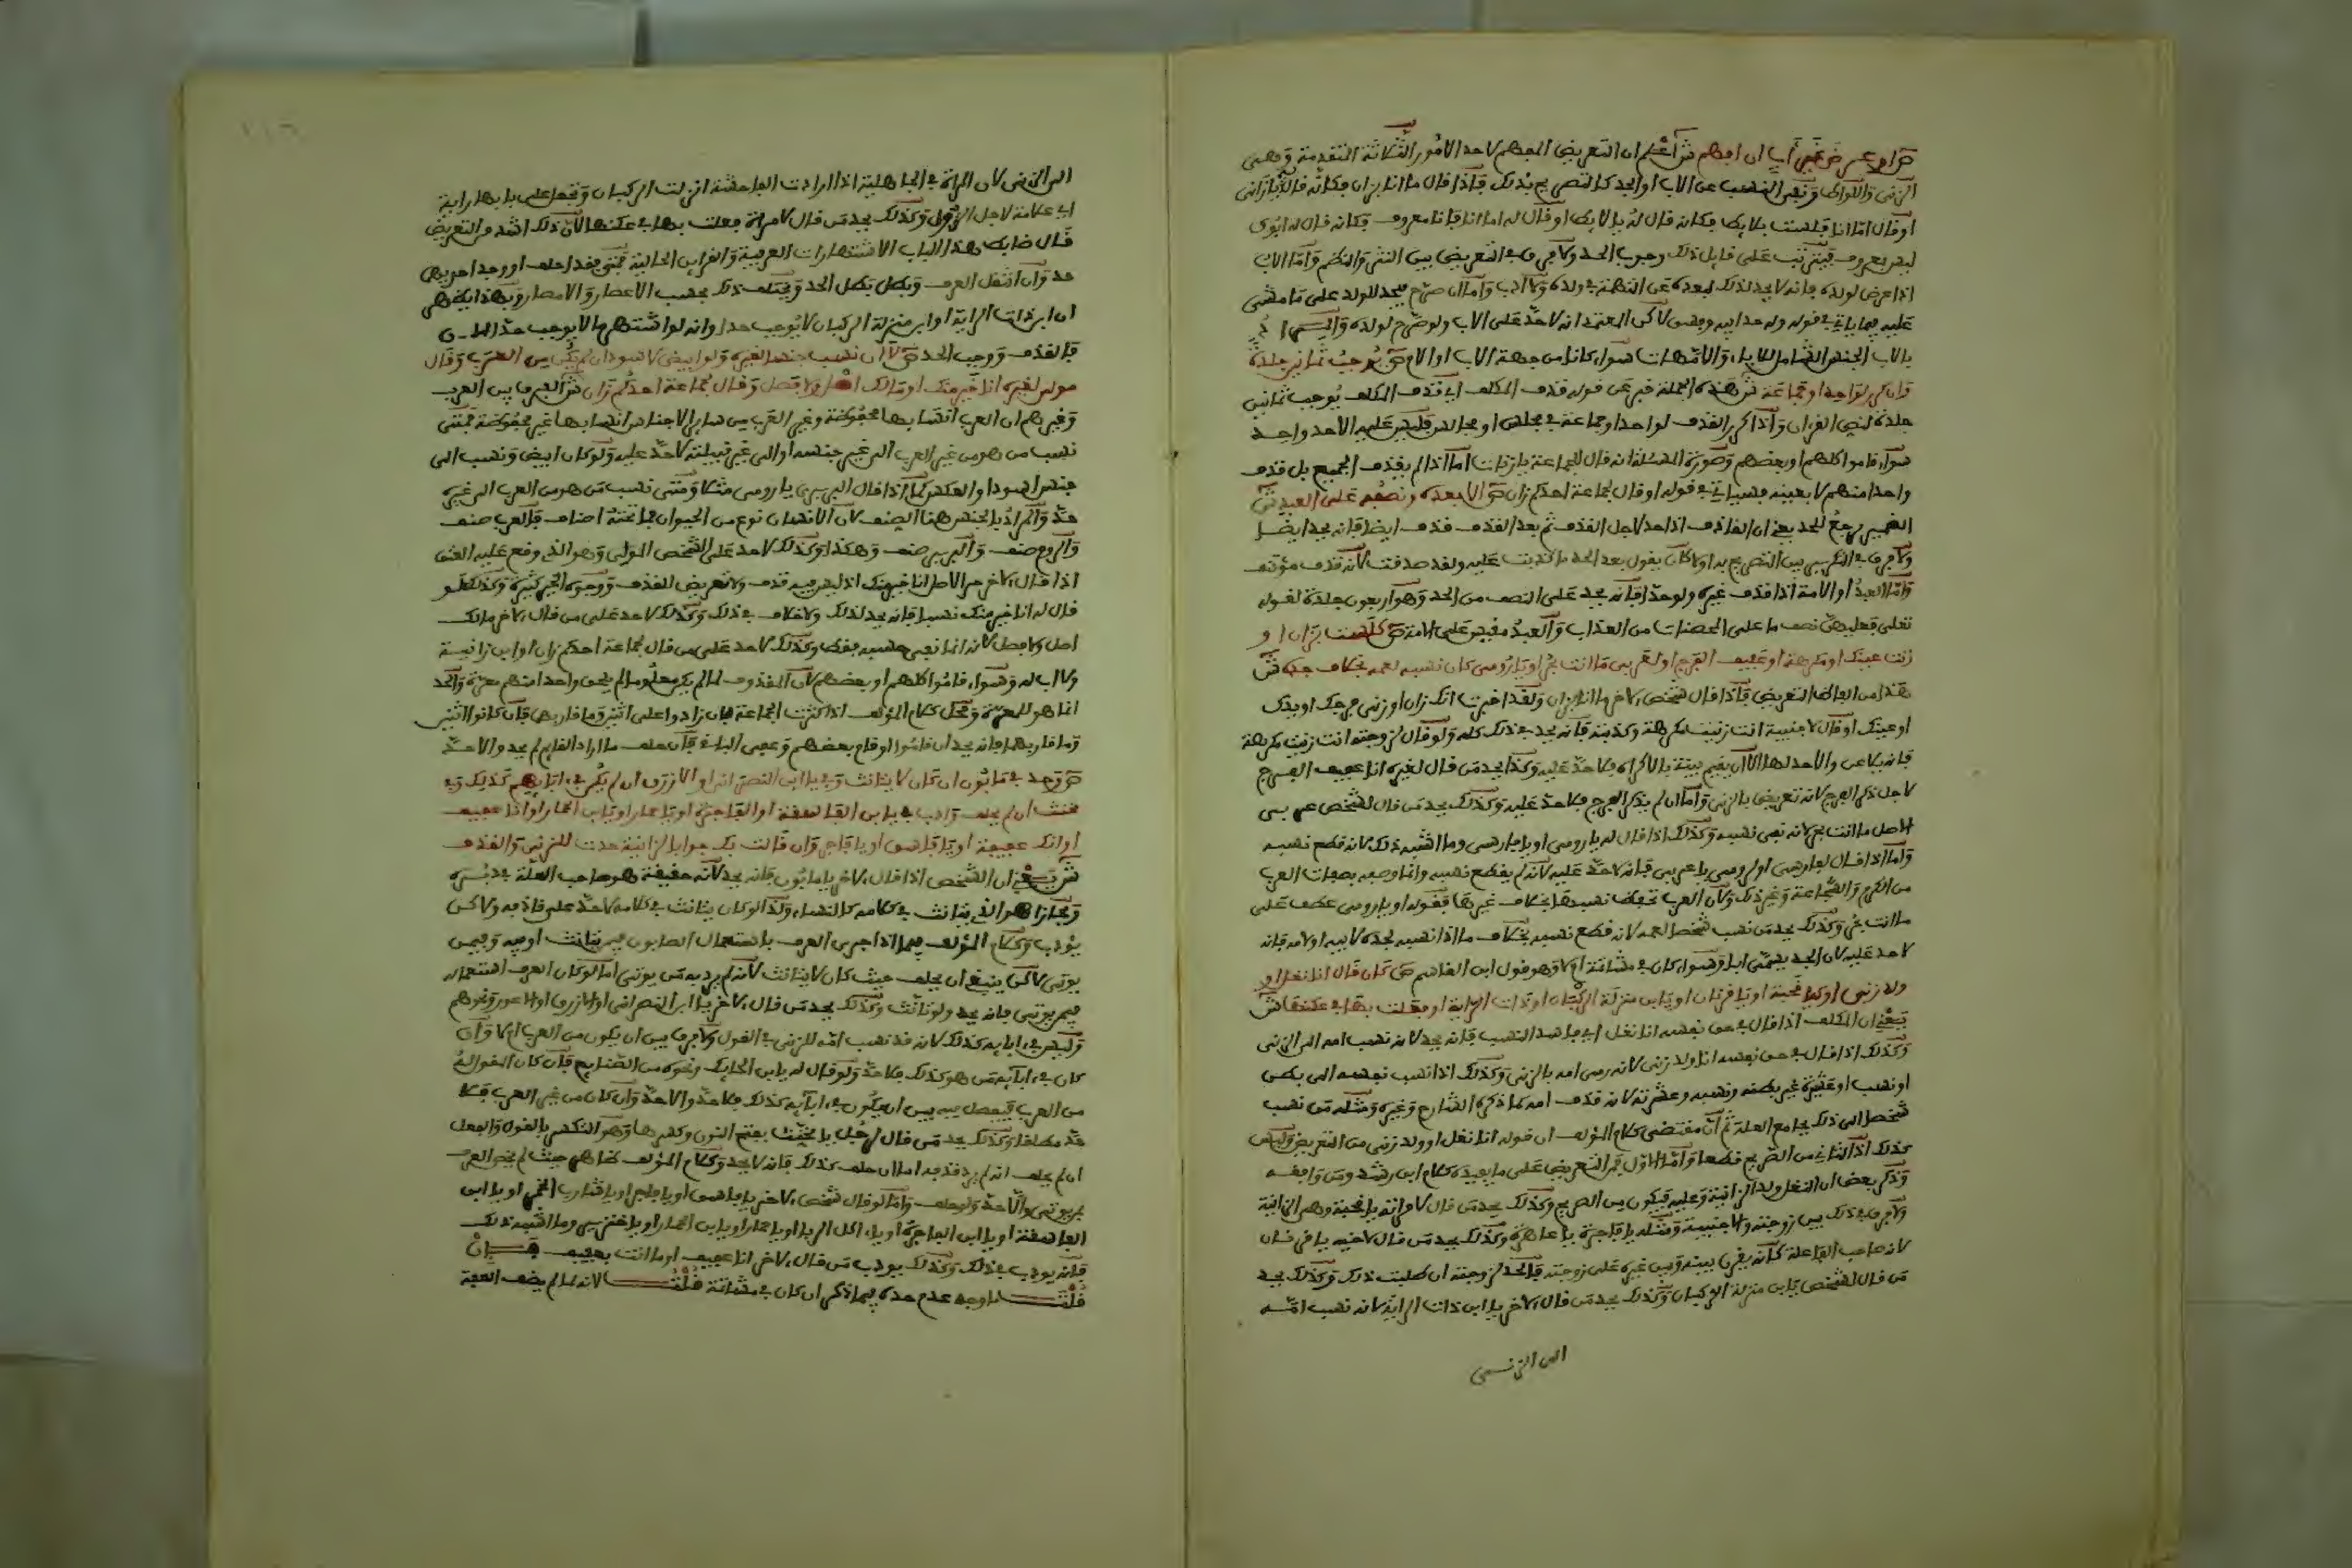 ص او عرض غير أب ان افهم ش اعلم ان التعريض المفهم لاحد الامور الثلاثة المتقدمة وهي
الزنى واللواط ونفي النسب عن الاب او الجد كالتصريح بذلك فاذا قال ما انا بزان فكانه قال له يا زاني
او قال اما انا فلست بلايط فكانه قال له يا لايط او قال له اما انا فانا معروف فكانه قال له ابوك
ليس بمعروف فيترتب على قايل ذلك وجوب الحد ولا فرق في التعريض بين النثر والنظم واما الاب
اذا عرض لولده فانه لا يحد لذلك لبعده عن التهمة في ولده ولا ادب واما ان صرح فيحد للولد على ما مشى
عليه فيما ياتي في قوله وله حد ابيه وفسق لاكن المعتمد انه لا حد على الاب ولو صرح لولده والمراد
بالاب الجنس الشامل للاباء والامهات سواء كانا من جهة الاب او الام ص يوجب ثمانين جلدة
وان كرر لواحد او جماعة ش هذه الجملة خبر عن قوله قذف المكلف اي قذف المكلف يوجب ثمانين
جلدة لنص القرآن واذا كرر القذف لواحد او جماعة في مجلس او مجالس فليس عليه الا حد واحد
سواء قاموا كلهم او بعضهم وصورة المسئلة انه قال للجماعة يا زنات اما اذا لم يقذف الجميع بل قذف
واحدا منهم لا بعينه فسياتي في قوله او قال لجماعة احدكم زان ص الا بعده ونصفه على العبد ش
الضمير يرجع للحد يعني ان القاذف اذا حد لاجل القذف ثم بعد القذف قذف ايضا فانه يحد ايضا
ولا فرق في التكرير بين التصريح به او لا كان يقول بعد الحد ما كذبت عليه ولقد صدقت لانه قذف مؤتنف
واما العبد او الامة اذا قذف غيره ولو حرا فانه يحد على النصف من الحد وهو اربعون جلدة لقوله
تعلى فعليهن نصف ما على المحصنات من العذاب والعبد مقيس على الامة ص كلست بزان او
زنت عينك او مكرهة او عفيف الفرج او لعربي ما انت بحر او يا رومي كان نسبه لعمه بخلاف جده ش
هذا من الفاظ التعريض فاذا قال شخص لاخر ما انا بزان ولقد اخبرت انك زان او زنى فرجك او يدك
او عينك او قال لاجنبية انت زنيت مكرهة وكذبته فانه يحد في ذلك كله ولو قال لزوجته انت زنيت مكرهة
فانه يلاعن والا حد لها الا ان يقيم بينة بالاكراه فلا حد عليه وكذا يحد من قال لغيره انا عفيف الفرج
لاجل ذكر الفرج لانه تعريض بالزنى واما ان لم يذكر الفرج فلا حد عليه وكذلك يحد من قال لشخص عربي
الاصل ما انت بحر لانه نفى نسبه وكذلك اذا قال له يا رومي او يا فارسي وما اشبه ذلك لانه قطع نسبه
واما اذا قال لفارسي او لرومي يا عربي فانه لا حد عليه لانه لم يقطع نسبه وانما وصفه بصفات العرب
من الكرم والشجاعة وغير ذلك ولان العرب تحفظ نسبها بخلاف غيرها فقوله او يا رومي عطف على
ما انت بحر وكذلك يحد من نسب شخصا لعمه لانه قطع نسبه بخلاف ما اذا نسبه لجده لابيه او لامه فانه
لا حد عليه لان الجد يسمى ابا وسواء كان في مشاتمة ام لا وهو قول ابن القاسم ص كان قال انا نغل او
ولد زنى او كيا قحبة او يا قرنان او يا ابن منزلة الركبان او ذات الراية او فعلت بها في عكنها ش
يعني ان المكلف اذا قال في حق نفسه انا نغل اي فاسد النسب فانه يحد لانه نسب امه الى الزنى
وكذلك اذا قال في حق نفسه انا ولد زنى لانه رمى امه بالزنى وكذلك اذا نسب نفسه الى بطن
او نسب او عشيرة غير بطنه ونسبه وعشرته لانه قذف امه كما ذكره الشارح وغيره ومثله من نسب
شخصا الى ذلك بجامع العلة ثم ان مقتضى كلام المؤلف ان قوله انا نغل او ولد زنى من التعريض وليس
كذلك اذ الثاني من الصريح قطعا واما الاول فمن التعريض على ما يفيده كلام ابن رشد ومن وافقه
وذكر بعض ان النغل ولد الزانية وعليه فيكون من الصريح وكذلك يحد من قال لامراته يا قحبة وهي الزانية
ولا فرق في ذلك بين زوجته والاجنبية ومثله يا فاجرة يا عاهرة وكذلك يحد من قال لاخيه يا قرنان
لانه صاحب الفاعلة كانه يقرن بينه وبين غيره على زوجته فالحد لزوجته ان طلبت ذلك وكذلك يحد
من قال لشخص يا ابن منزلة الركبان وكذلك يحد من قال لاخر يا ابن ذات الراية لانه نسب امه
الى الزنى
الى الزنى لان المراة في الجاهلية اذا ارادت الفاحشة انزلت الركبان وتجعل على بابها راية
اي علامة لاجل النزول وكذلك يحد من قال لامراة فعلت بها في عكنها لان ذلك اشد من التعريض
قال ضابط هذا الباب الاشتهارات العرفية والقراين الحالية فمتى فقدا حلف او وجد احدهما
حد وان انتقل العرف وبطل بطل الحد ويختلف ذلك بحسب الاعصار والامصار وبهذا يظهر
ان ابن ذات الراية او ابن منزلة الركبان لا يوجب حدا وانه لو اشتهر ما لا يوجب حدا
فالقذف وجب الحد ص لا ان نسب جنسا لغيره ولو ابيض لاسود ان لم يكن من العرب او قال
مولى لغيره انا خير منك او مالك اصل ولا فصل او قال لجماعة احدكم زان ش الفرق بين العرب
وغيرهم ان العرب انسابها محفوظة وغير العرب من سائر الاجناس انسابها غير محفوظة فمتى
نسب من هو من غير العرب الى غير جنسه او الى غير قبيلته لا حد عليه ولو كان ابيض ونسب الى
جنس اسود او العكس كما اذا قال لبربري يا رومي مثلا ومتى نسب من هو من العرب الى غيره
حد والمراد بالجنس هنا الصنف لان الانسان نوع من الحيوان فما تحته اصناف فالعرب صنف
والروم صنف والبربر صنف وهكذا وكذلك لا حد على الشخص المولى وهو الذي وقع عليه العتق
اذا قال لاخر حر الاصل انا خير منك اذ ليس فيه قذف ولا تعريض القذف ووجوه الخير كثيرة وكذلك لو
قال له انا خير منك نسبا فانه يحد لذلك ولا خلاف في ذلك وكذلك لا حد على من قال لاخر مالك
اصل ولا فصل لانه انما نفى حسبه فقط وكذلك لا حد على من قال لجماعة احدكم زان او ابن زانية
ولا اب له وسواء قاموا كلهم او بعضهم لان المقذوف لما لم يكن معلوما لم يلحق واحدا منهم معرة والحد
انما هو للمعرة ومحل كلام المؤلف اذا كثرت الجماعة بان زادوا على اثنين وما قاربهما فان كانوا اثنين
وما قاربهما فانه يحد ان قاموا او قام بعضهم وعفى الباقي فان حلف ما اراد القايم لم يحد والا حد
ص وحد في مابون ان كان لا يتانث وفي يا ابن النصراني او الازرق ان لم يكن في ابايه كذلك وفي
مخنث ان لم يحلف وادب في يا ابن الفاسقة او الفاجرة او يا حمار او يا ابن الحمار او انا عفيف
او انك عفيفة او يا فاسق او يا فاجر وان قالت بك جوابا لزانية حدت للزنى والقذف
ش يعني ان الشخص اذا قال لاخر يا مابون فانه يحد لانه حقيقة هو صاحب العلة في دبره
ومجازا هو الذي يتانث في كلامه كالنساء ولذا لو كان يتانث في كلامه لا حد على قاذفه ولاكن
يؤدب وكلام المؤلف فيما اذا جرى العرف باستعمال المابون فيمن يتانث او فيه وفيمن
يوتى لاكن ينبغي ان يحلف حيث كان لا يتانث لانه لم يرد به من يوتى اما لو كان العرف استعماله
فيمن يوتى فانه يحد ولو تانث وكذلك يحد من قال لاخر يا ابن النصراني او الازرق او الاعور ونحوهم
وليس في ابايه كذلك لانه قد نسب امه للزنى في القول ولا فرق بين ان يكون من العرب ام لا وان
كان في ابايه من هو كذلك فلا حد ولو قال له يا ابن الحايك ونحوه من الصنايع فان كان المقول له
من العرب فيفصل فيه بين ان يكون في ابايه كذلك فلا حد والا حد وان كان من غير العرب فلا
حد مطلقا وكذلك يحد من قال لرجل يا مخنث بفتح النون وكسرها وهو التكسر بالقول والفعل
ان لم يحلف انه لم يرد قذفه اما ان حلف كذلك فانه لا يحد وكلام المؤلف ظاهر حيث لم يخص العرف
بمن يوتى والا حد ولو حلف واما لو قال شخص لاخر يا فاسق او يا فاجر او يا شارب الخمر او يا ابن
الفاسقة او يا ابن الفاجرة او يا اكل الربا او يا حمار او يا ابن الحمار او يا خنزير وما اشبه ذلك
فانه يودب في ذلك وكذلك يودب من قال لاخر انا عفيف او ما انت بعفيف فان
قلت ما وجه عدم حده فيما ذكر ان كان في مشاتمة قلت لانه لما لم يضف العفة